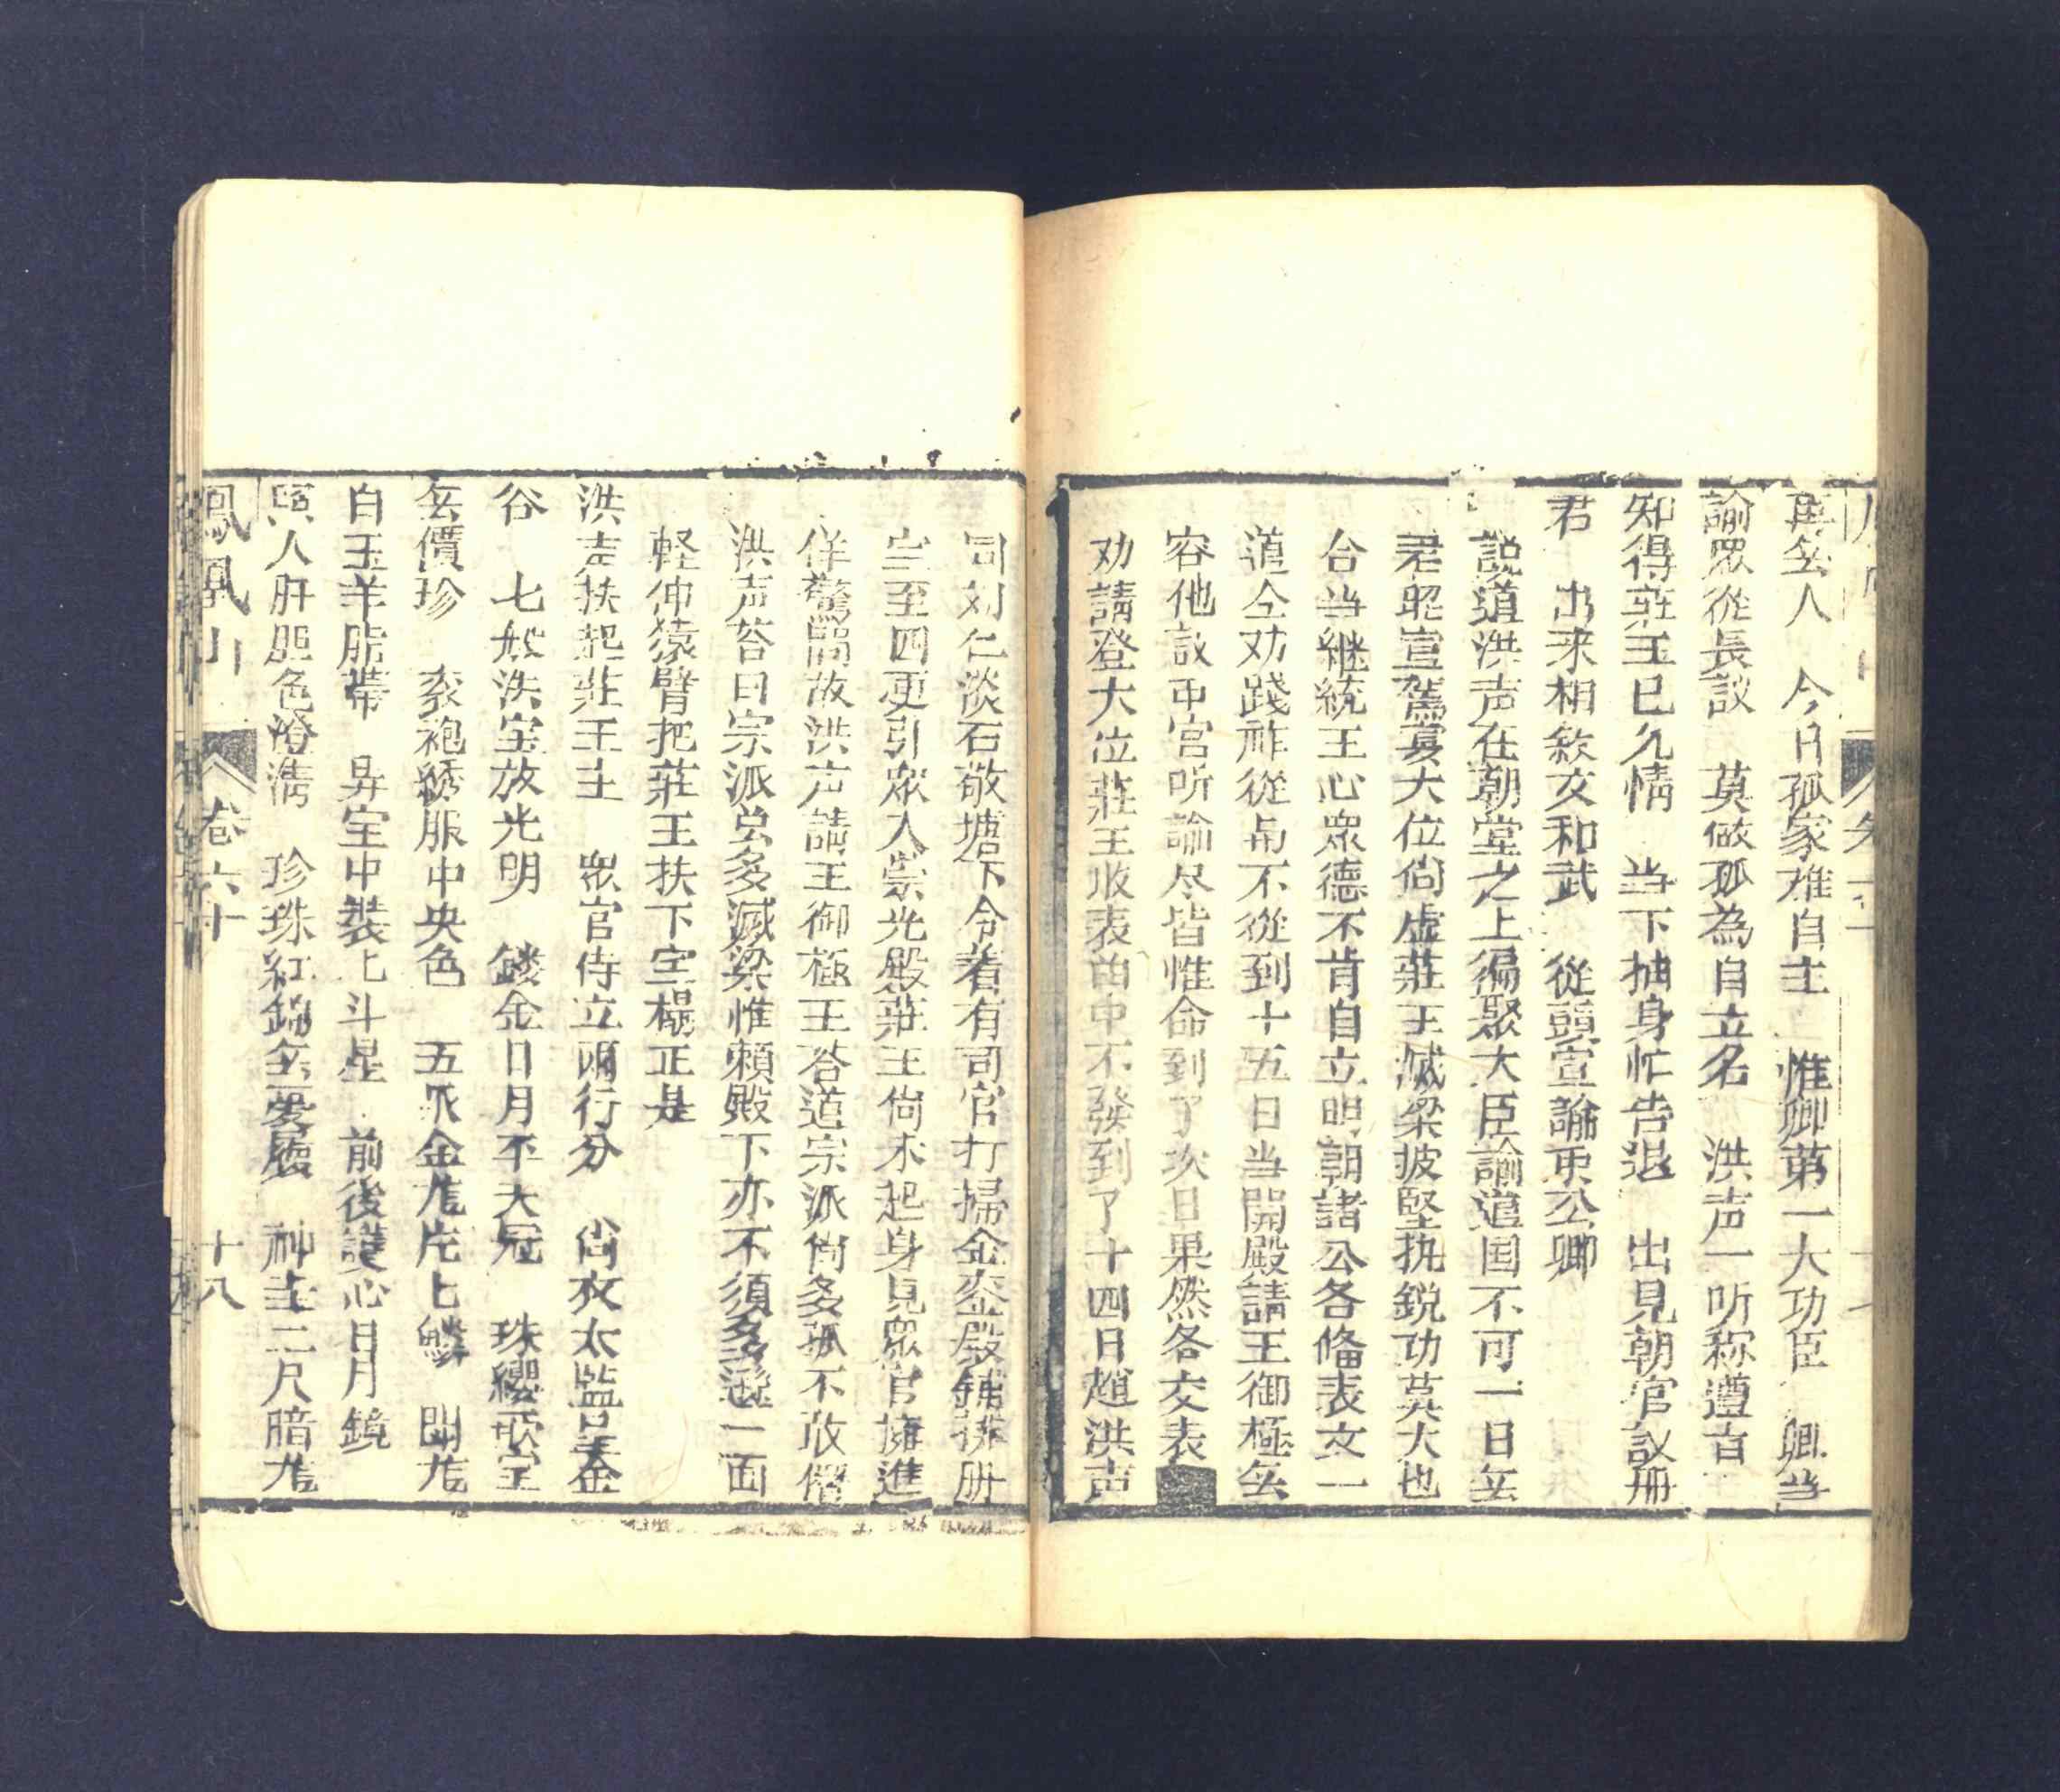 再無人　今日孤家难自主　惟卿第一大功臣　卿当
諭眾從長談　莫做孤為自立名　洪声一听称遵旨
知得莊王已允情　当下抽身忙告退　出見朝官議冊
君　出来相敘文和武　從頭宣諭眾公卿
說道洪声在朝堂之上徧聚大臣諭道国不可一日無
君昭宣駕宴大位尙虛莊王滅梁披堅执銳功莫大也
合当継統王心眾德不肯自立明朝諸公各俻表文一
道仝劝踐祚從与不從到十五日当開殿請王御極無
容他議眾官听諭尽皆惟命到了次日果然各交表
劝請登大位莊王收表留中不發到了十四日趙洪声
同刘仁淡石敬塘下令着有司官打掃金銮殿鋪排册
宝至四更引眾人崇光殿莊王尙未起身見眾官擁進
佯驚問故洪声請王御極王荅道宗派尙多孤不敢僣
洪声荅曰宗派虽多滅梁惟頼殿下亦不須多遜一面
軽伸猿臂把莊王扶下宝榻正是
洪声扶起莊王主　眾官侍立兩行分　尙衣太监呈金
谷　七般洪宝放光明　鏤金日月平天冠　珠纓歌宝
無價珍　袞袍綉服中央色　五爪金龙片上鱗　閙龙
白玉羊脂帶　异宝中裝七斗星　前後護心日月鏡
照人肝胆色澄淸　珍珠紅錦無憂履　神圭二尺暗龙
鳳凰山　卷六十　十八